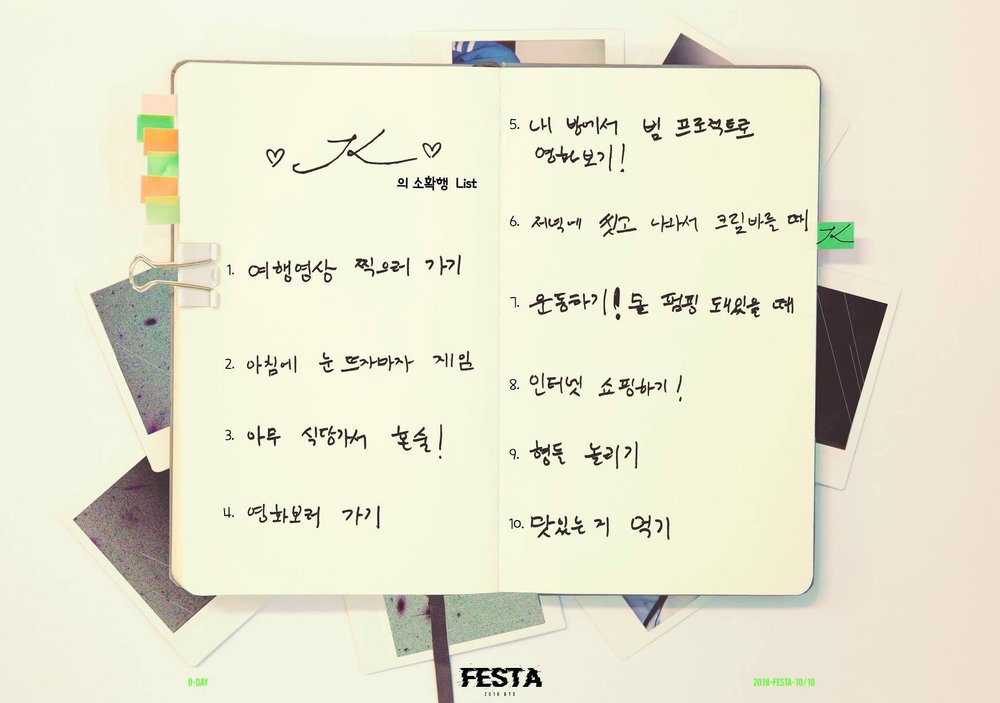 JK
의 소확행 List
1. 여행영상 찍으러 가기
2. 아침에 눈 뜨자마자 게임
3. 아무 식당가서 혼술!
4. 영화보러 가기
5. 내 방에서 빔 프로젝트로
영화보기!
6. 저녁에 씻고 나와서 크림바를 때
7. 운동하기! 몸 펌핑 돼있을 때
8. 인터넷 쇼핑하기!
9. 형들 놀리기
10. 맛있는 거 먹기
JK
D-DAY
FESTA
2018 BTS
2018-FESTA-10/10